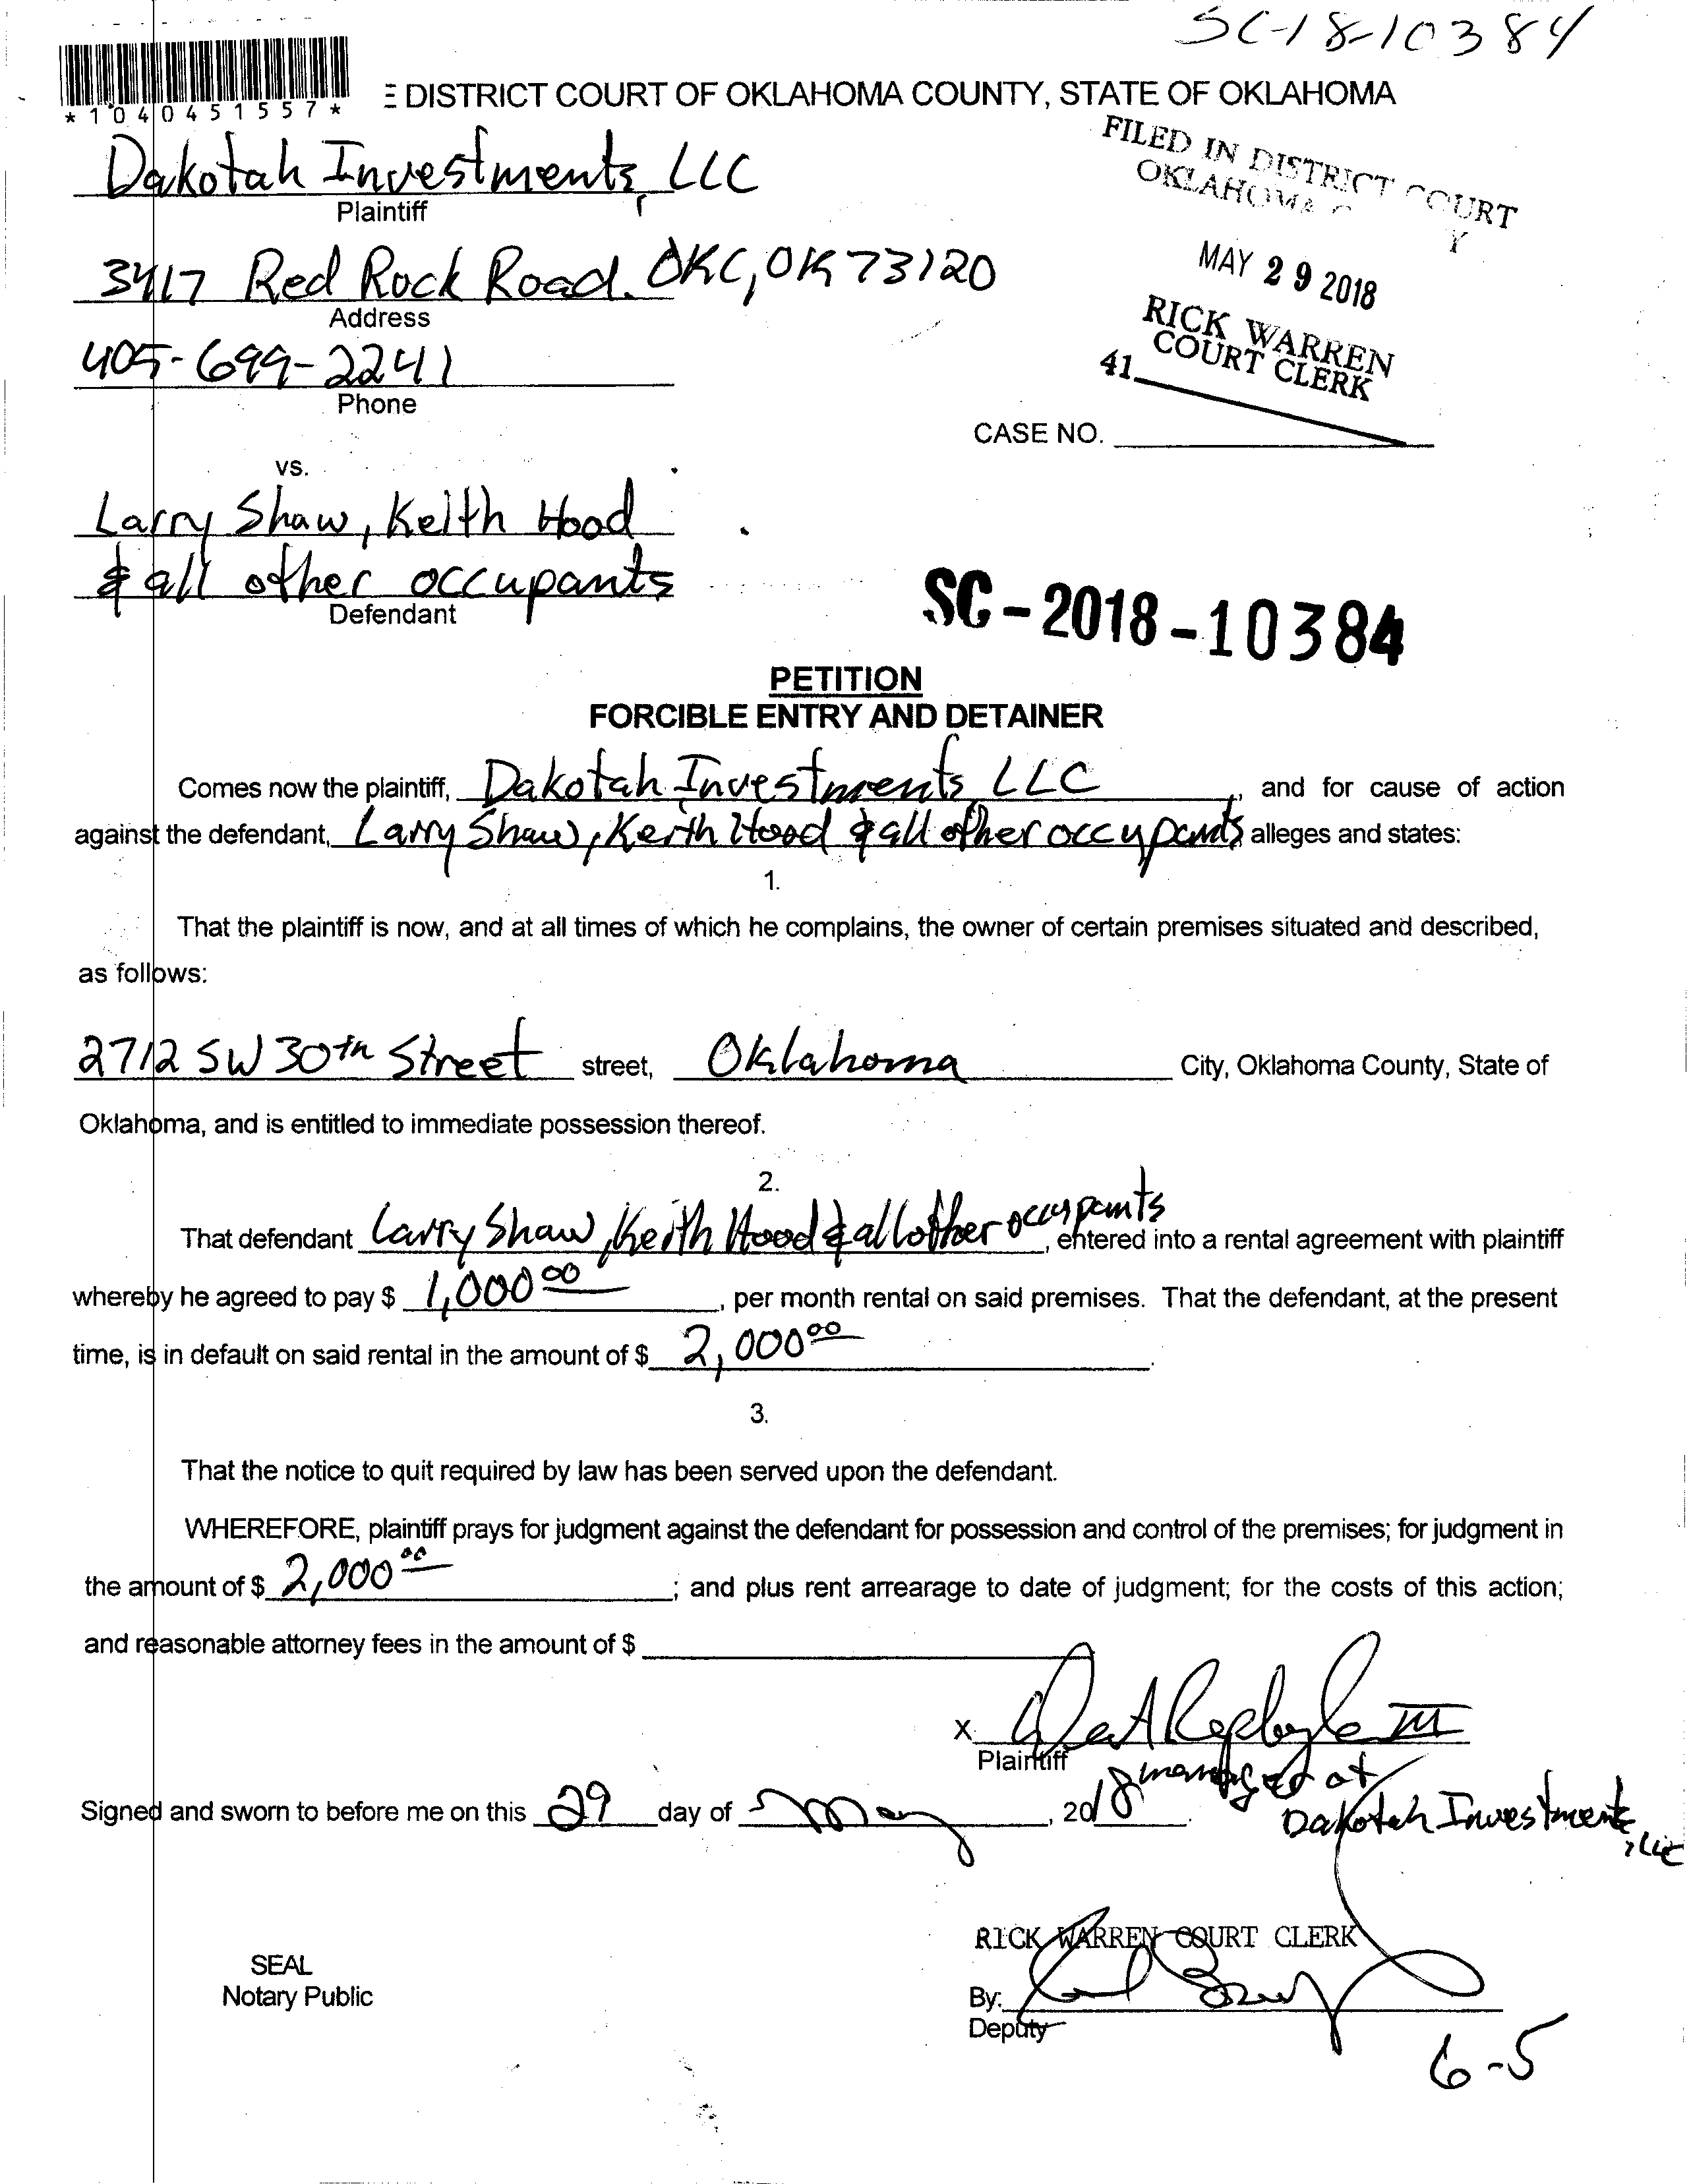 SC-18-10384
*1040451557*
E DISTRICT COURT OF OKLAHOMA COUNTY, STATE OF OKLAHOMA
Dakotah Investments, LLC
Plaintiff
FILED IN DISTRICT COURT
OKLAHOMA C Y
3417 Red Rock Road. OKC, OK 73120
Address
MAY 29 2018
RICK WARREN
COURT CLERK
41
405-699-2241
Phone
CASE NO.
vs.
Larry Shaw, Keith Hood
& all other occupants
Defendant
SC-2018-10384
PETITION
FORCIBLE ENTRY AND DETAINER
Comes now the plaintiff, Dakotah Investments, LLC, and for cause of action
against the defendant, Larry Shaw, Keith Hood & all other occupants alleges and states:
1.
That the plaintiff is now, and at all times of which he complains, the owner of certain premises situated and described,
as follows:
2712 SW 30th Street street, Oklahoma City, Oklahoma County, State of
Oklahoma, and is entitled to immediate possession thereof.
2.
That defendant Larry Shaw, Keith Hood & all other occupants, entered into a rental agreement with plaintiff
whereby he agreed to pay $ 1,000.00, per month rental on said premises. That the defendant, at the present
time, is in default on said rental in the amount of $ 2,000.00.
3.
That the notice to quit required by law has been served upon the defendant.
WHEREFORE, plaintiff prays for judgment against the defendant for possession and control of the premises; for judgment in
the amount of $ 2,000.00; and plus rent arrearage to date of judgment; for the costs of this action;
and reasonable attorney fees in the amount of $
X III
Plaintiff
at
Dakotah Investments, LLC
Signed and sworn to before me on this 29 day of May, 2018.
RICK WARREN COURT CLERK
SEAL
Notary Public
By:
Deputy
6-5